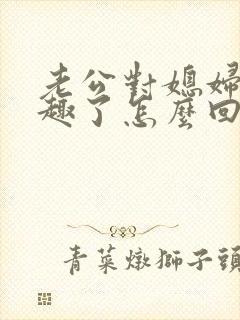 老公對媳婦
趣了怎麼回
青菜燉獅子頭